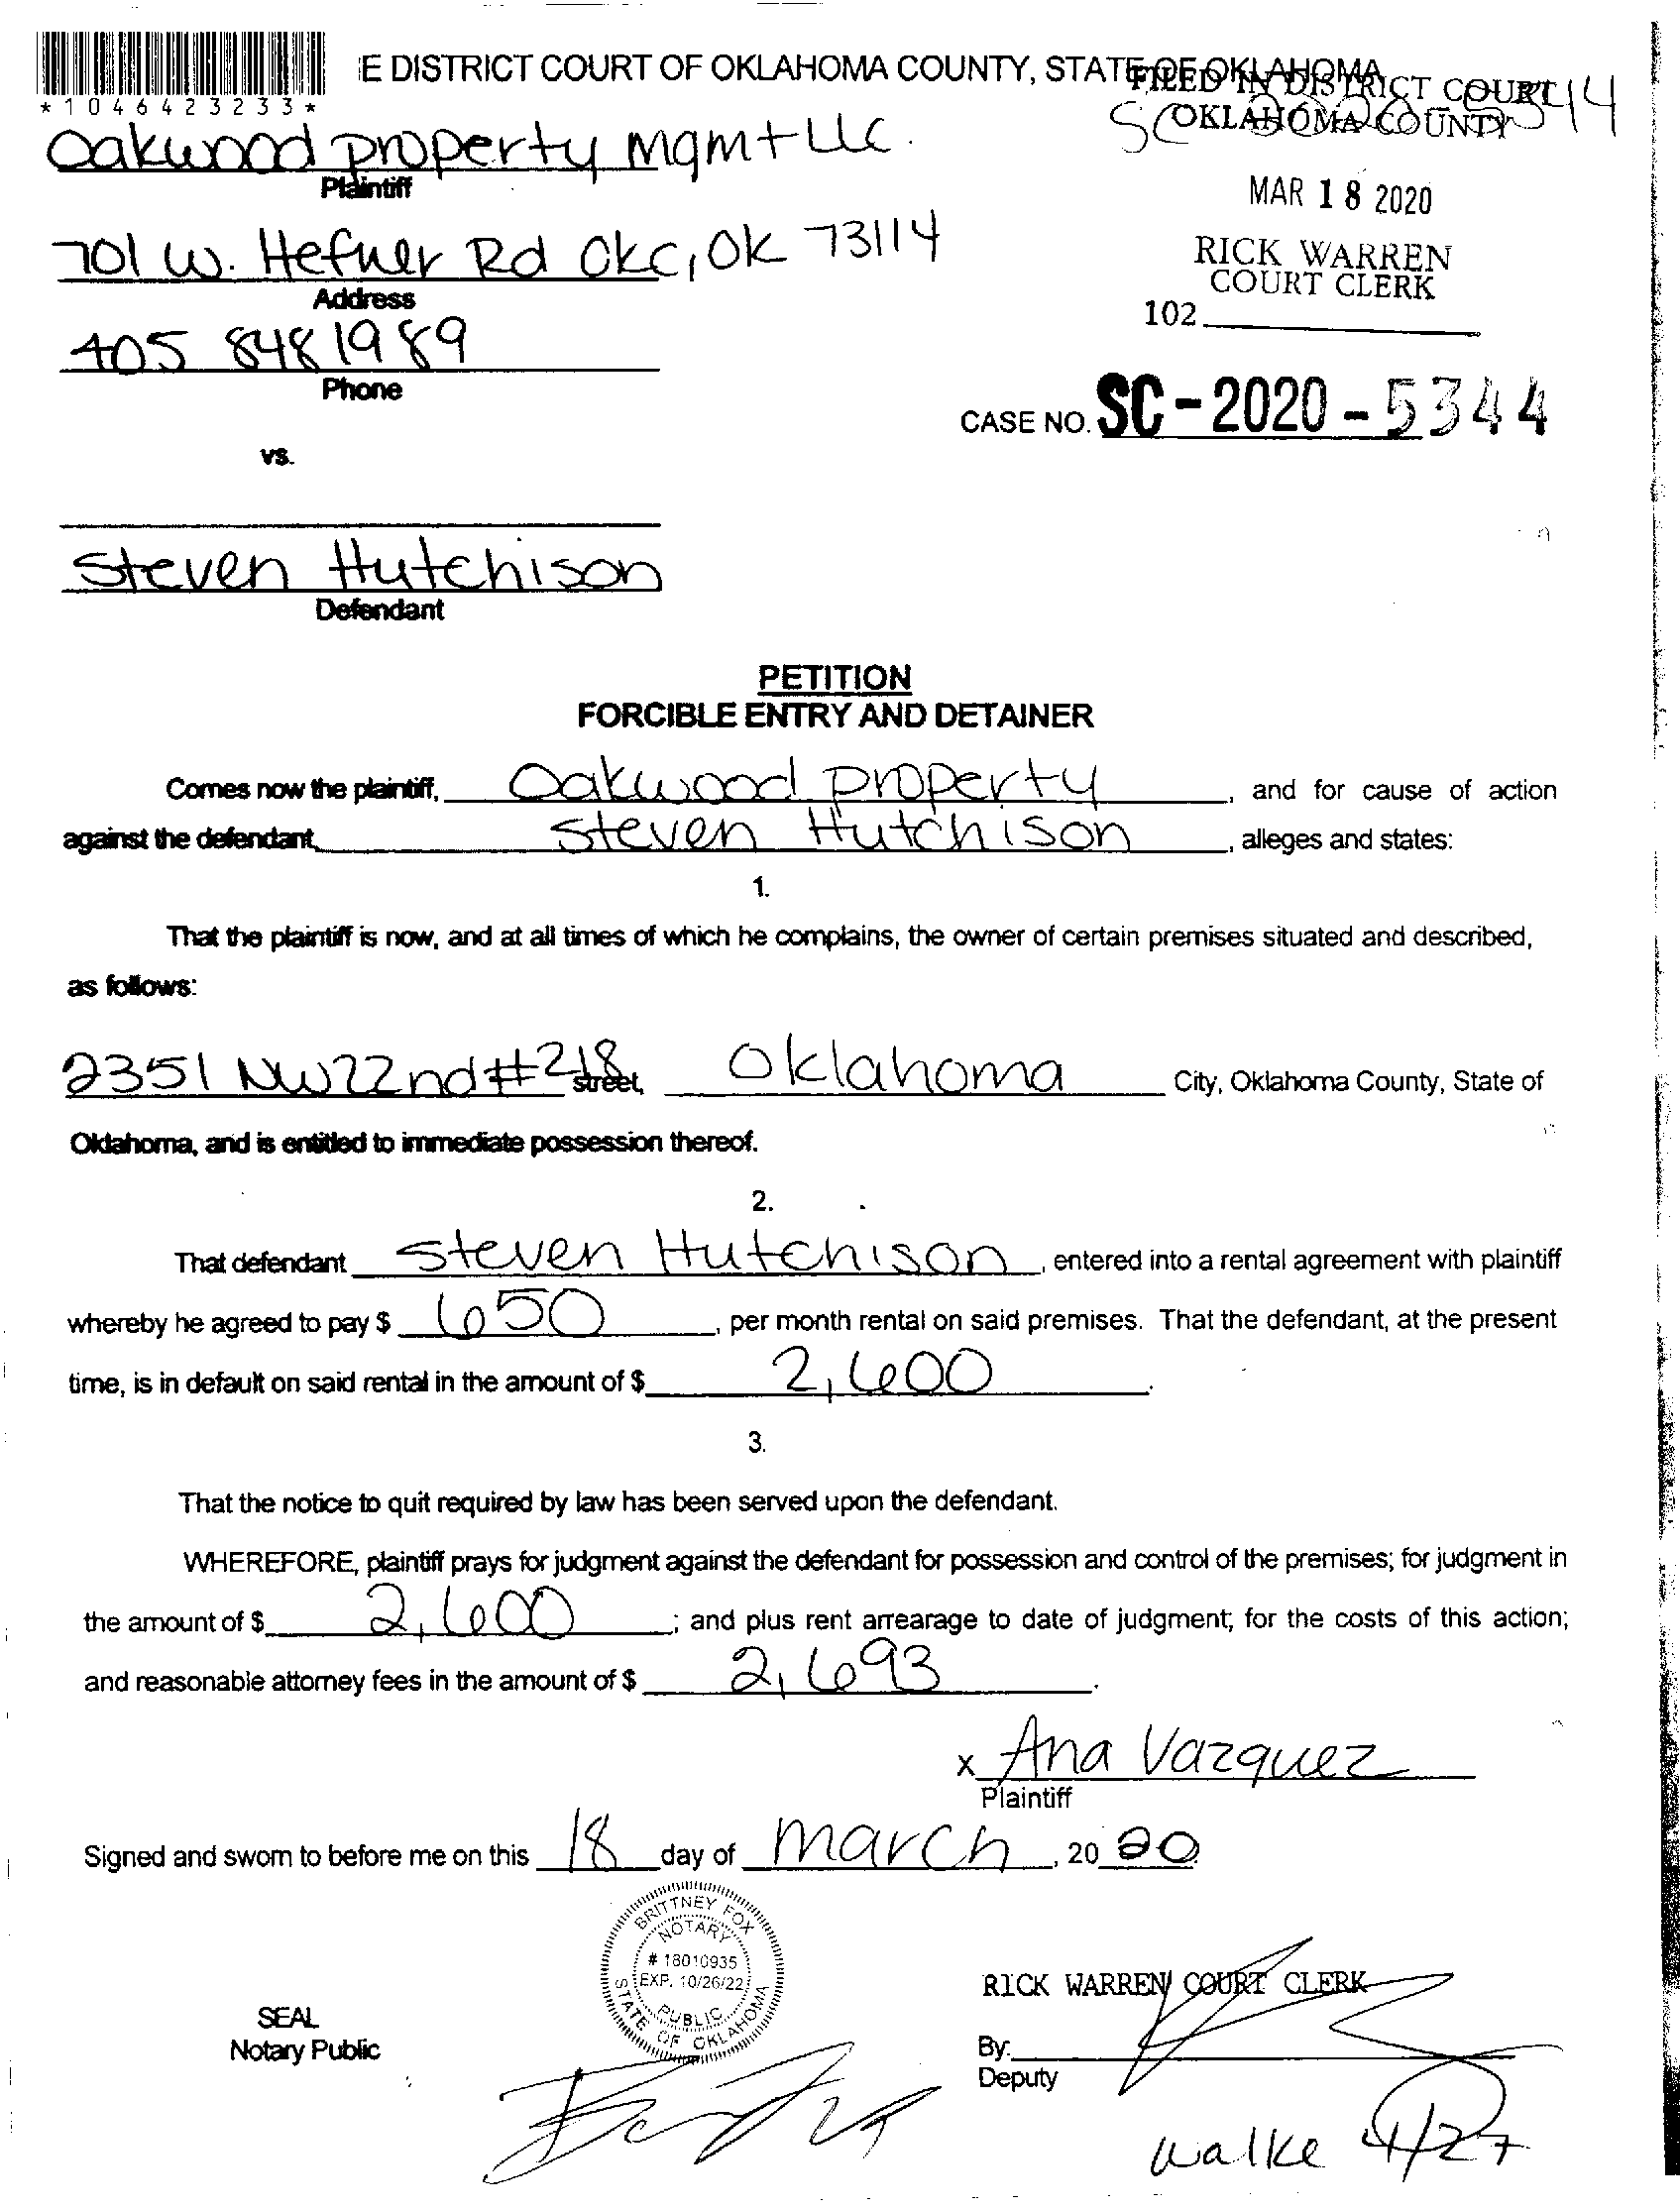 E DISTRICT COURT OF OKLAHOMA COUNTY, STATE OF OKLAHOMA
FILED IN DISTRICT COURT
OKLAHOMA COUNTY
*1046423233*
SC 2020-5344
Oakwood property mgmt LLC.
Plaintiff
MAR 18 2020
701 W. Hefner Rd OKC, OK 73114
Address
RICK WARREN
COURT CLERK
102
405 848 1989
Phone
CASE NO. SC-2020-5344
vs.
Steven Hutchison
Defendant
PETITION
FORCIBLE ENTRY AND DETAINER
Comes now the plaintiff, Oakwood property, and for cause of action
against the defendant, Steven Hutchison, alleges and states:
1.
That the plaintiff is now, and at all times of which he complains, the owner of certain premises situated and described,
as follows:
2351 NW 22nd #218 street, Oklahoma City, Oklahoma County, State of
Oklahoma, and is entitled to immediate possession thereof.
2.
That defendant Steven Hutchison, entered into a rental agreement with plaintiff
whereby he agreed to pay $ 650, per month rental on said premises. That the defendant, at the present
time, is in default on said rental in the amount of $ 2,600.
3.
That the notice to quit required by law has been served upon the defendant.
WHEREFORE, plaintiff prays for judgment against the defendant for possession and control of the premises; for judgment in
the amount of $ 2,600; and plus rent arrearage to date of judgment; for the costs of this action;
and reasonable attorney fees in the amount of $ 2,693.
x Ana Vazquez
Plaintiff
Signed and sworn to before me on this 18 day of March, 20 20.
BRITTNEY FOX
NOTARY
# 18010935
EXP. 10/26/22
PUBLIC
STATE OF OKLAHOMA
SEAL
Notary Public
RICK WARREN, COURT CLERK
By:
Deputy
Walke 4/27